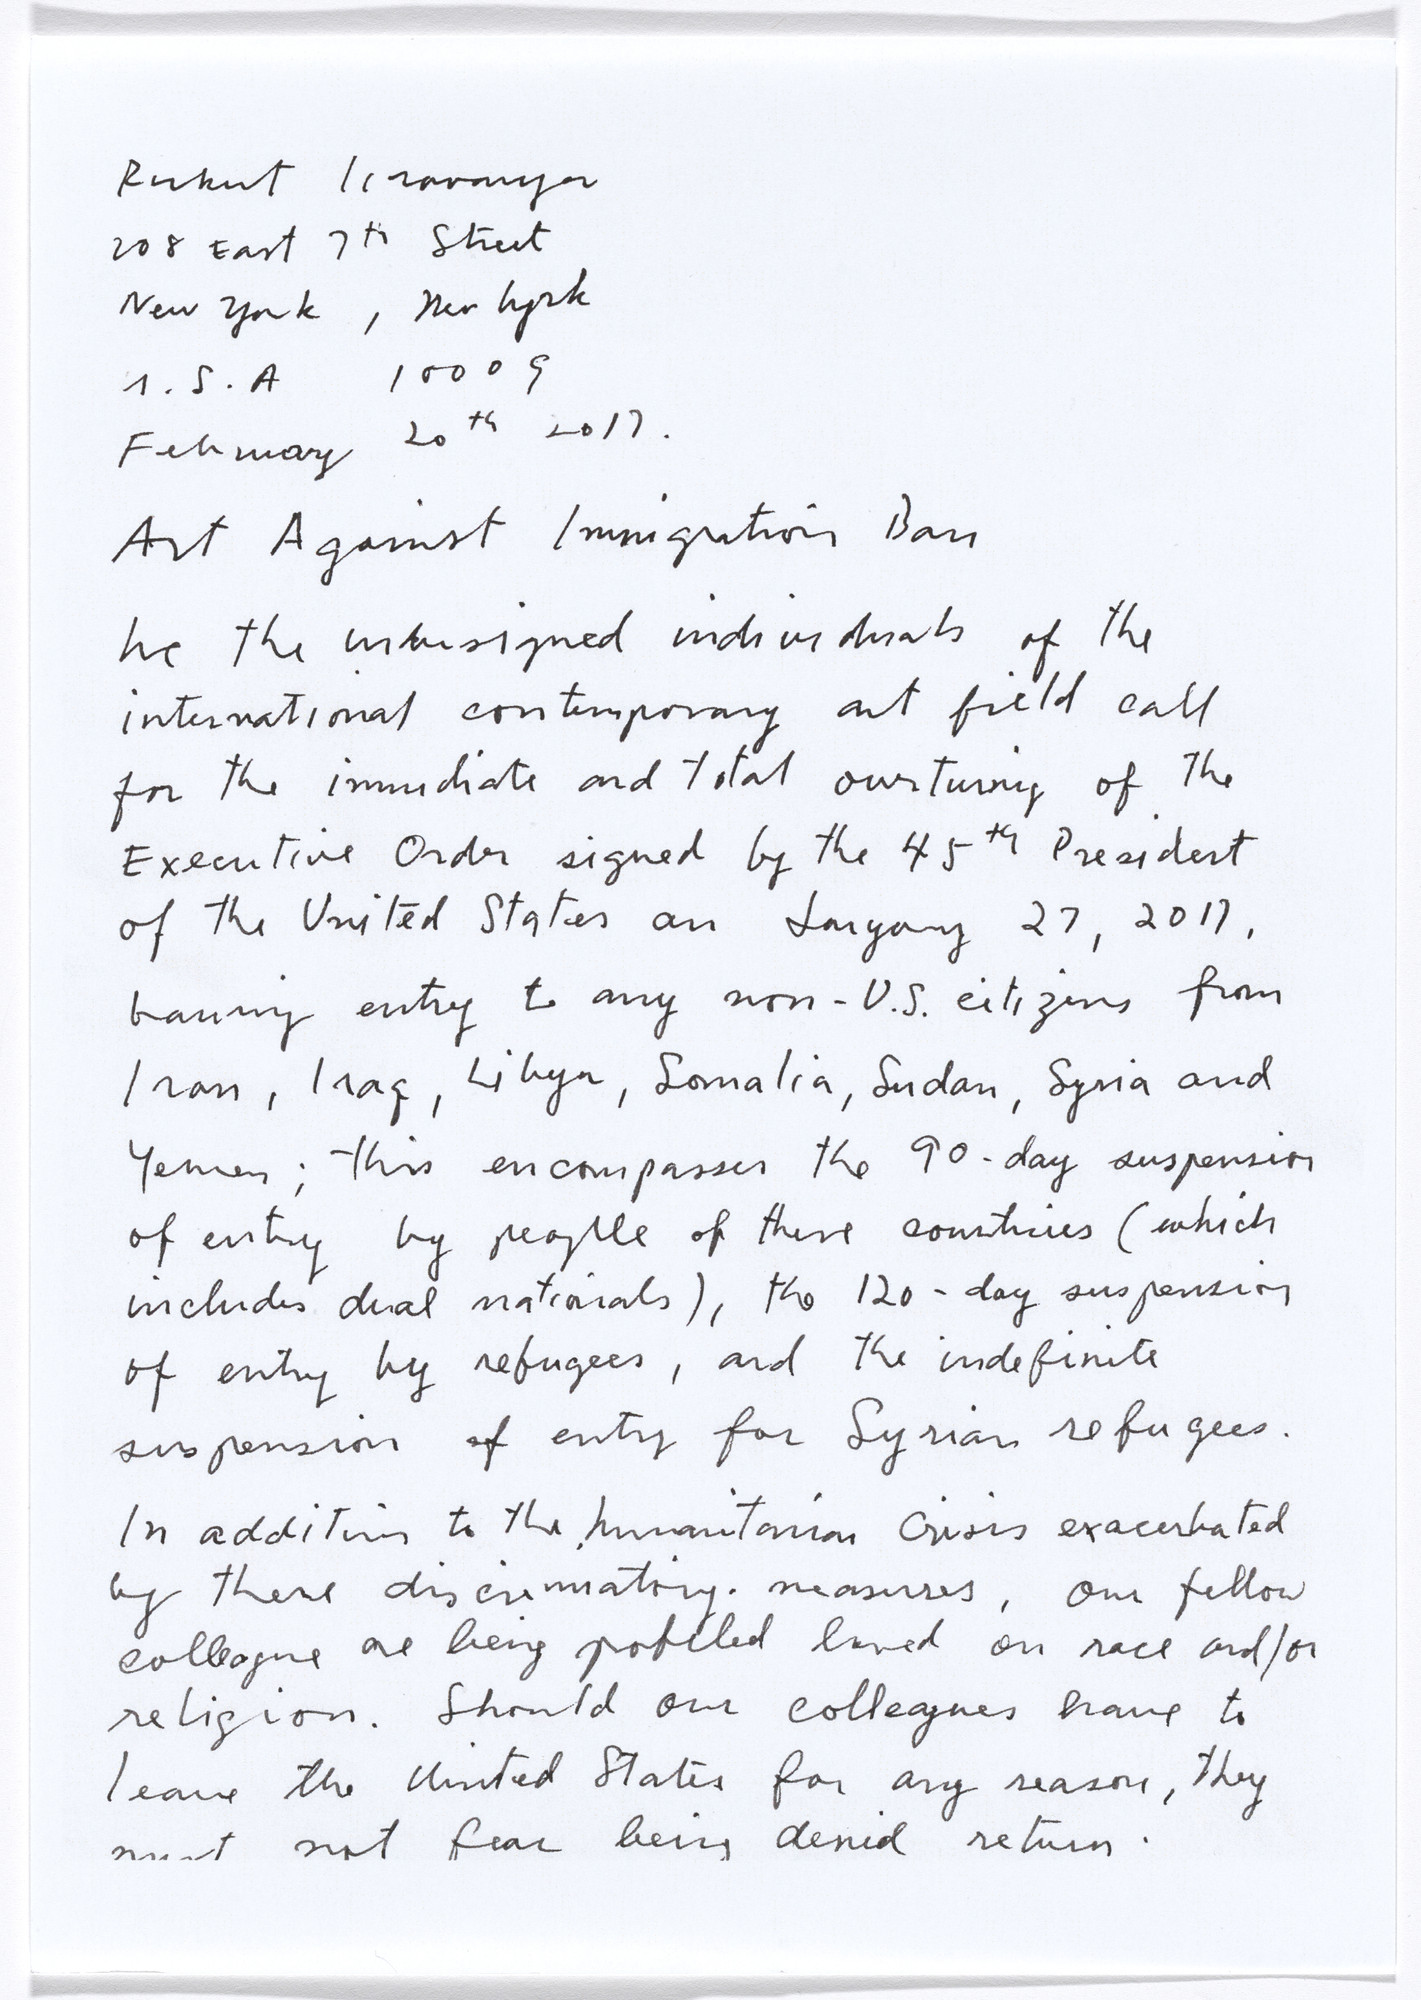 Rirkrit Tiravanija
208 East 7th Street
New York , New York
U.S.A 10009
February 20th 2017.
Art Against Immigration Ban
We the undersigned individuals of the
international contemporary art field call
for the immediate and total overturning of the
Executive Order signed by the 45th President
of the United States on January 27, 2017,
banning entry to any non-U.S. citizens from
Iran, Iraq, Libya, Somalia, Sudan, Syria and
Yemen; this encompasses the 90-day suspension
of entry by people of these countries (which
includes dual nationals), the 120-day suspension
of entry by refugees, and the indefinite
suspension of entry for Syrian refugees.
In addition to the humanitarian crisis exacerbated
by these discriminatory. measures, our fellow
colleague are being profiled based on race and/or
religion. Should our colleagues have to
leave the United States for any reason, they
must not fear being denied return.